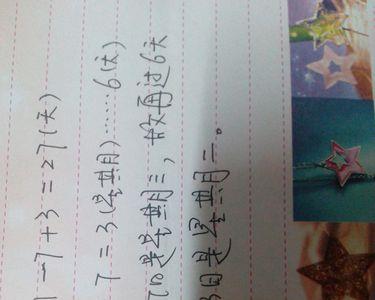 -7+3=27(天)
7=3(星期)……6(天)
日是星期三，故再过6天
日是星期二。